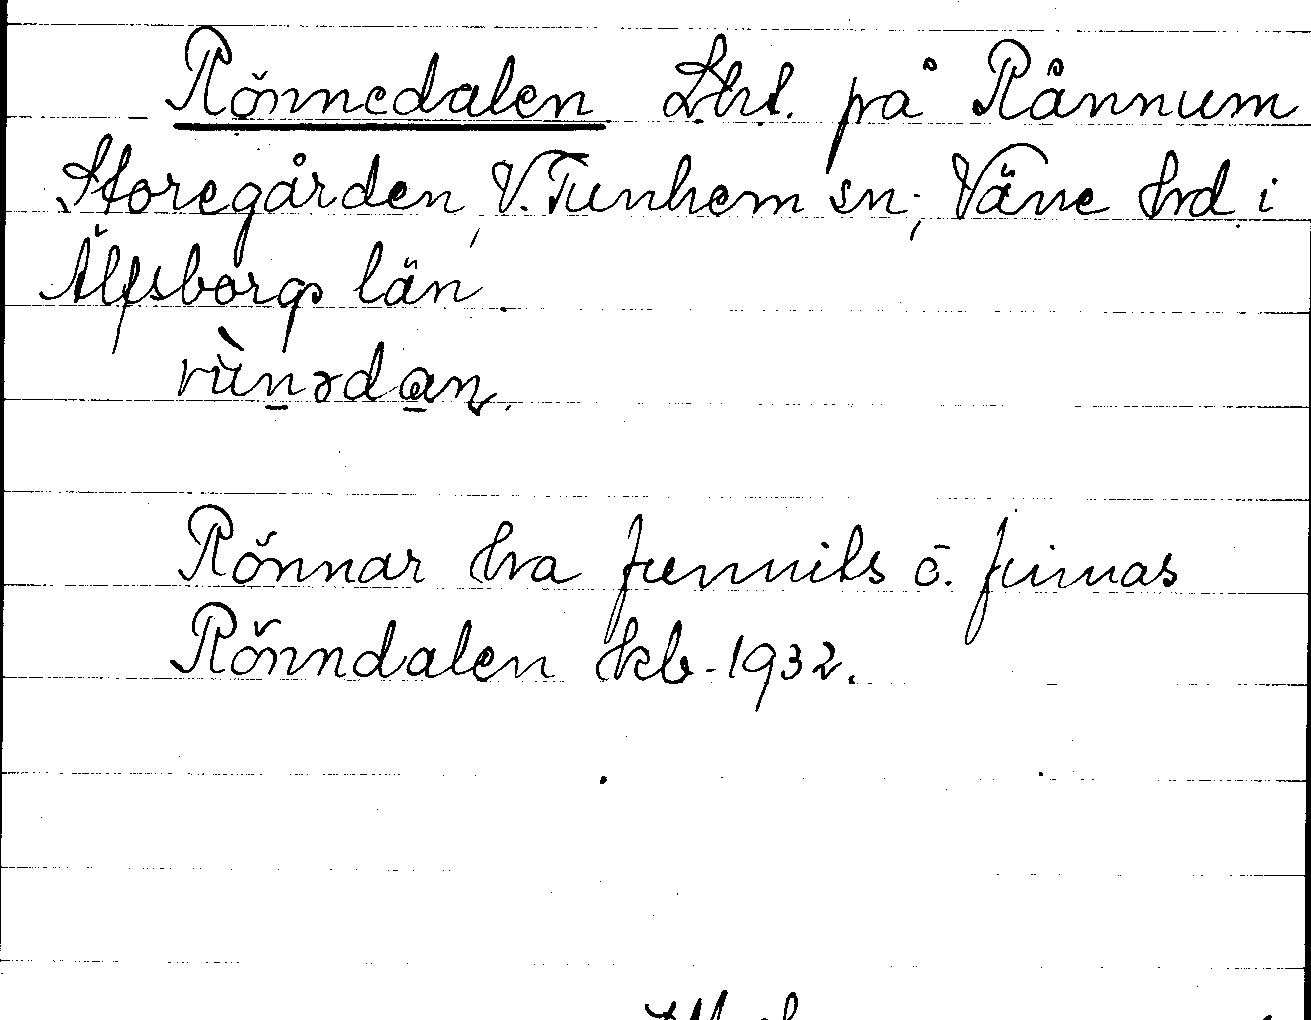 Rönnedalen Lht. på Rånnum
Storegården, V. Tunhem sn; Väne hrd i
Älfsborgs län.
rùnədan.
Rönnar ha funnits o. finnas
Rönndalen Hkb. 1932.